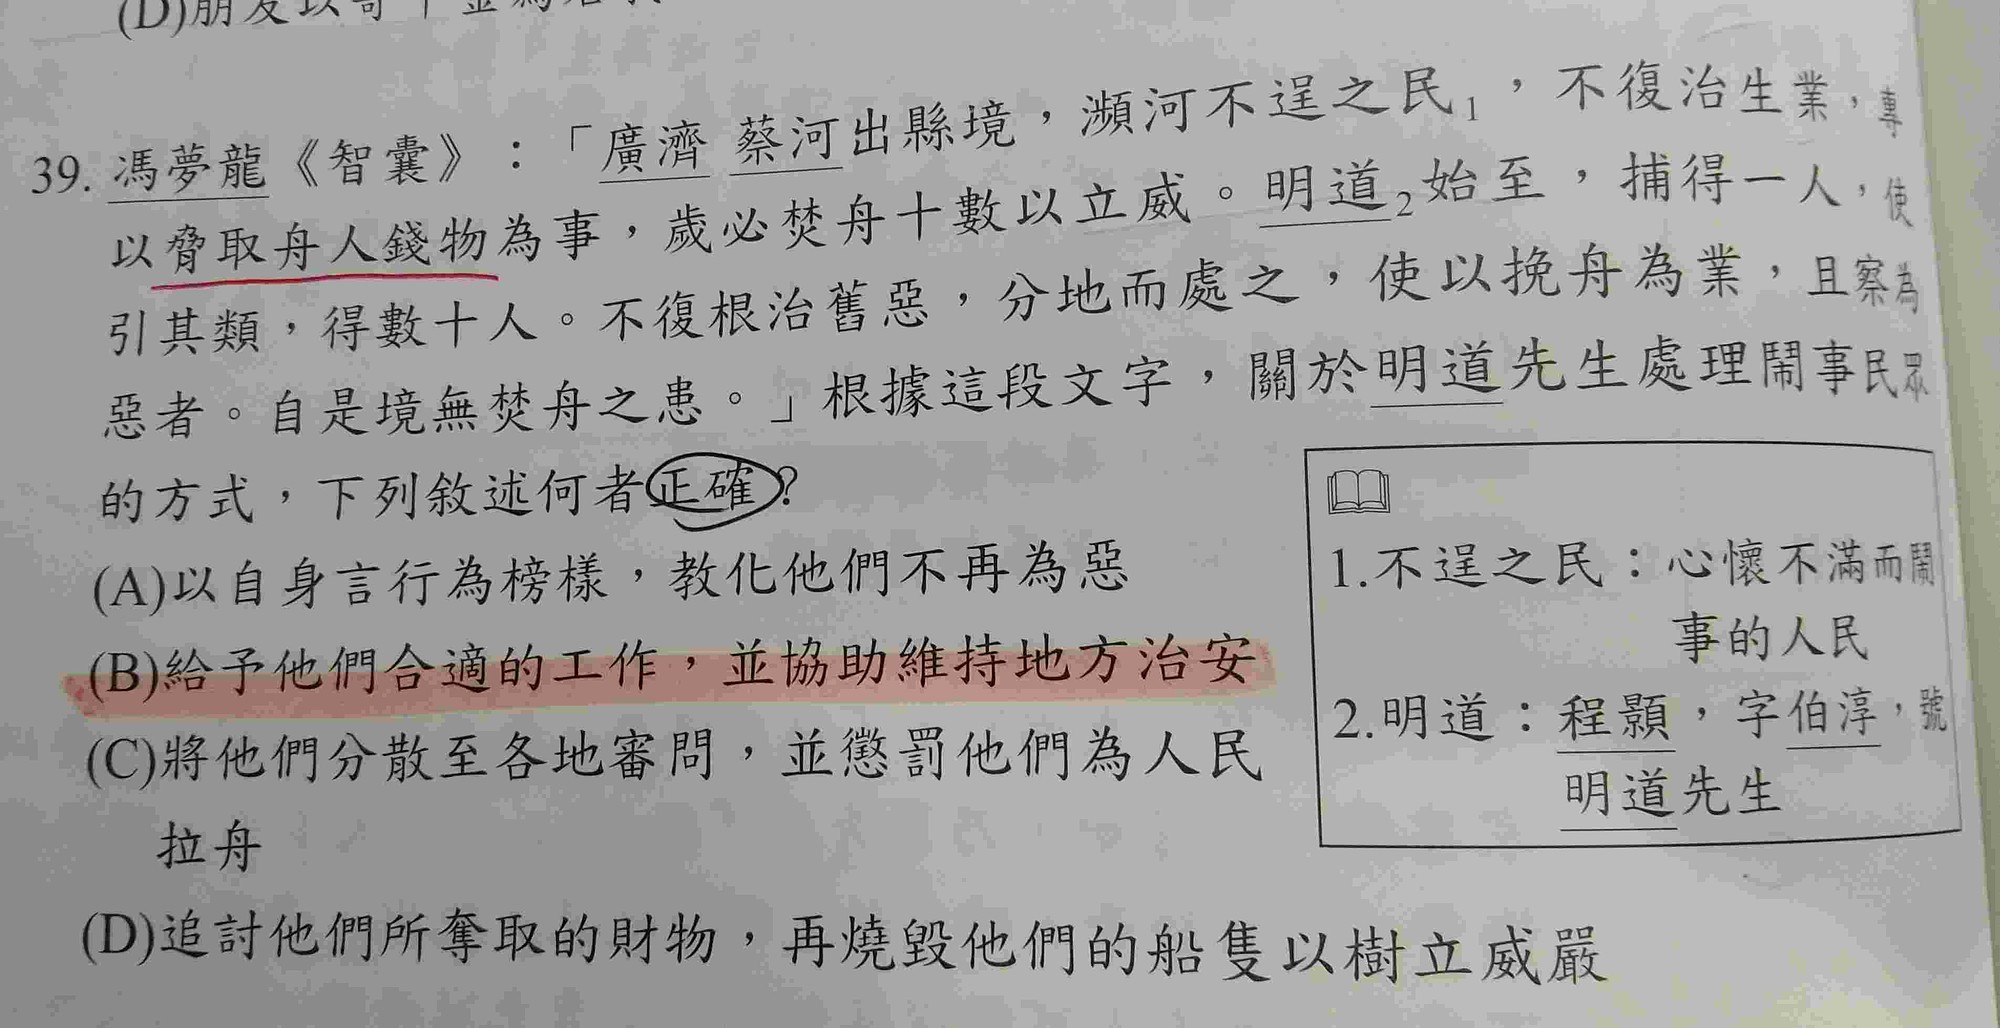 (D)朋友以
39. 馮夢龍《智囊》：「廣濟 蔡河出縣境，瀕河不逞之民1，不復治生業，專
以脅取舟人錢物為事，歲必焚舟十數以立威。明道2始至，捕得一人，使
引其類，得數十人。不復根治舊惡，分地而處之，使以挽舟為業，且察為
惡者。自是境無焚舟之患。」根據這段文字，關於明道先生處理鬧事民眾
的方式，下列敘述何者正確？
(A)以自身言行為榜樣，教化他們不再為惡
(B)給予他們合適的工作，並協助維持地方治安
(C)將他們分散至各地審問，並懲罰他們為人民
拉舟
(D)追討他們所奪取的財物，再燒毀他們的船隻以樹立威嚴
1.不逞之民：心懷不滿而鬧
事的人民
2.明道：程顥，字伯淳，號
明道先生